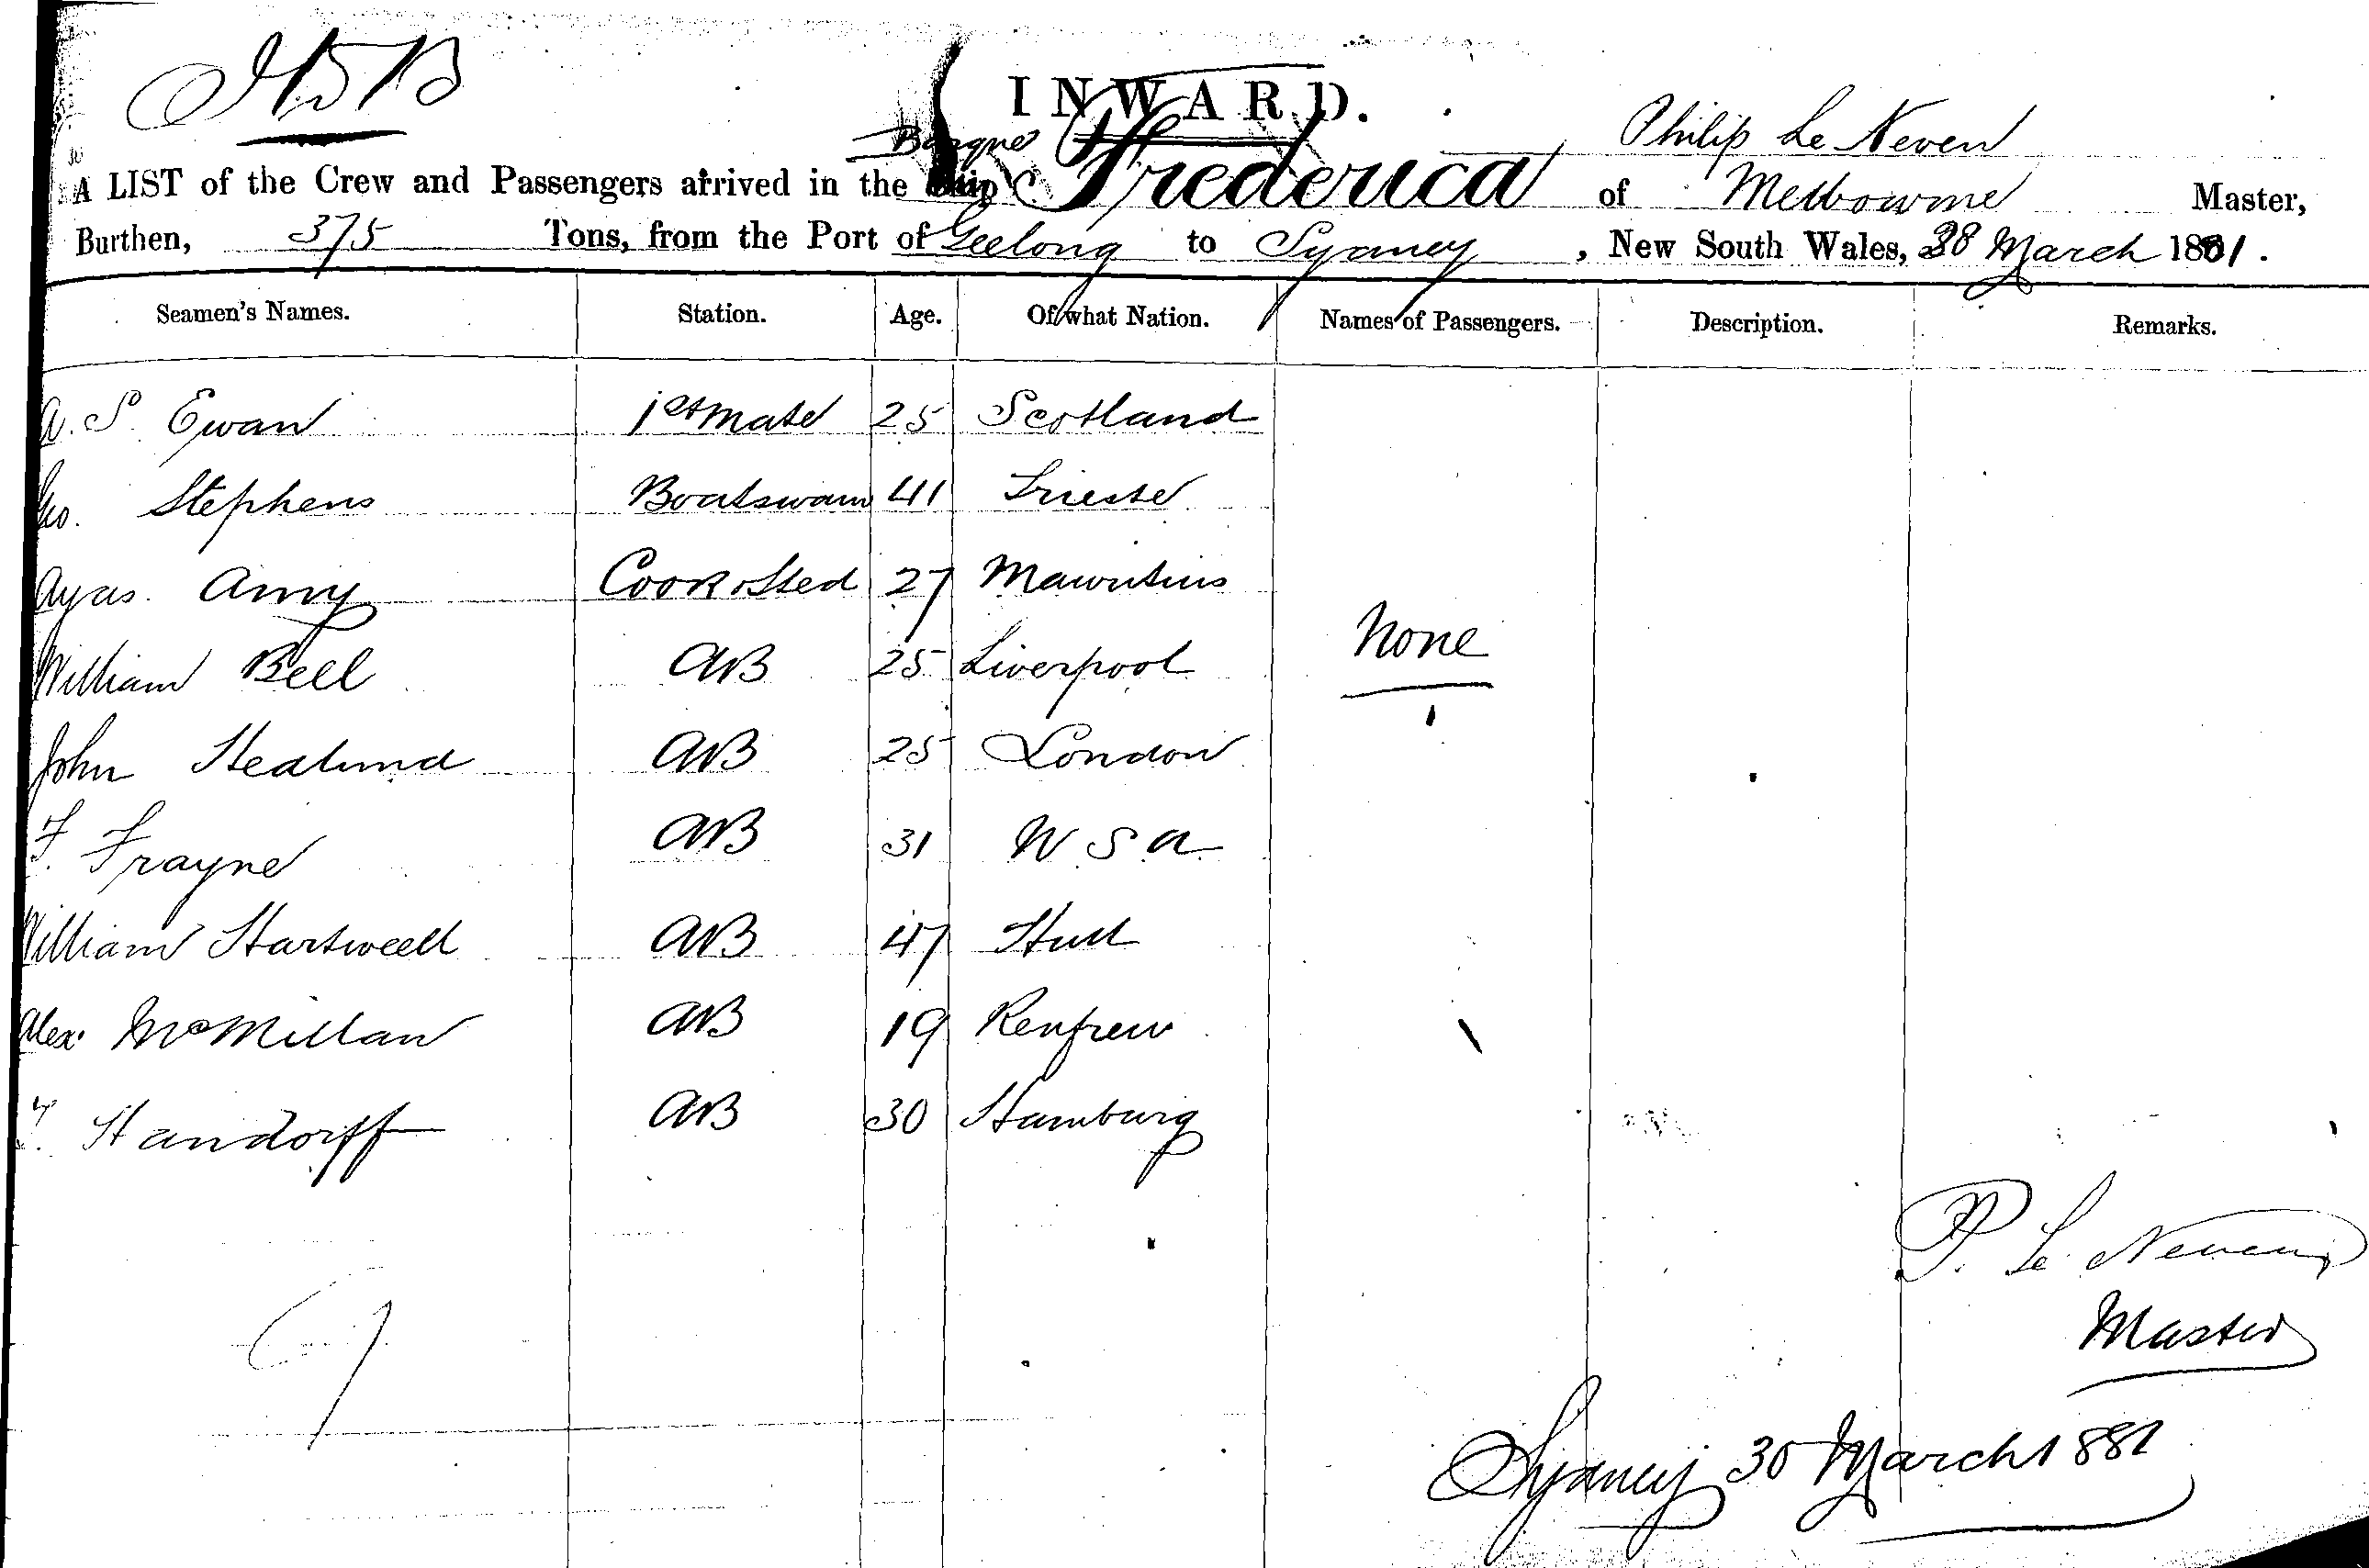 INWARD.
Philip Le Neven
A LIST of the Crew and Passengers arrived in the Barque Frederica of Melbourne Master,
Burthen, 375 Tons, from the Port of Geelong to Sydney, New South Wales, 28 March 1881.
Seamen's Names. Station. Age. Of what Nation. Names of Passengers. Description. Remarks.
A. S. Ewan 1st Mate 25 Scotland
Geo. Stephens Boatswain 41 Trieste
Amy Cook & Sted 27 Mauritius
William Bell AB 25 Liverpool
None
John Hedlund AB 25 London
F. Frayne AB 31 U S A
William Hartwell AB 47 Hull
Alex. McMillan AB 19 Renfrew
Handorff AB 30 Hamburg
P. Le Neven
Master
Sydney 30 March 1881